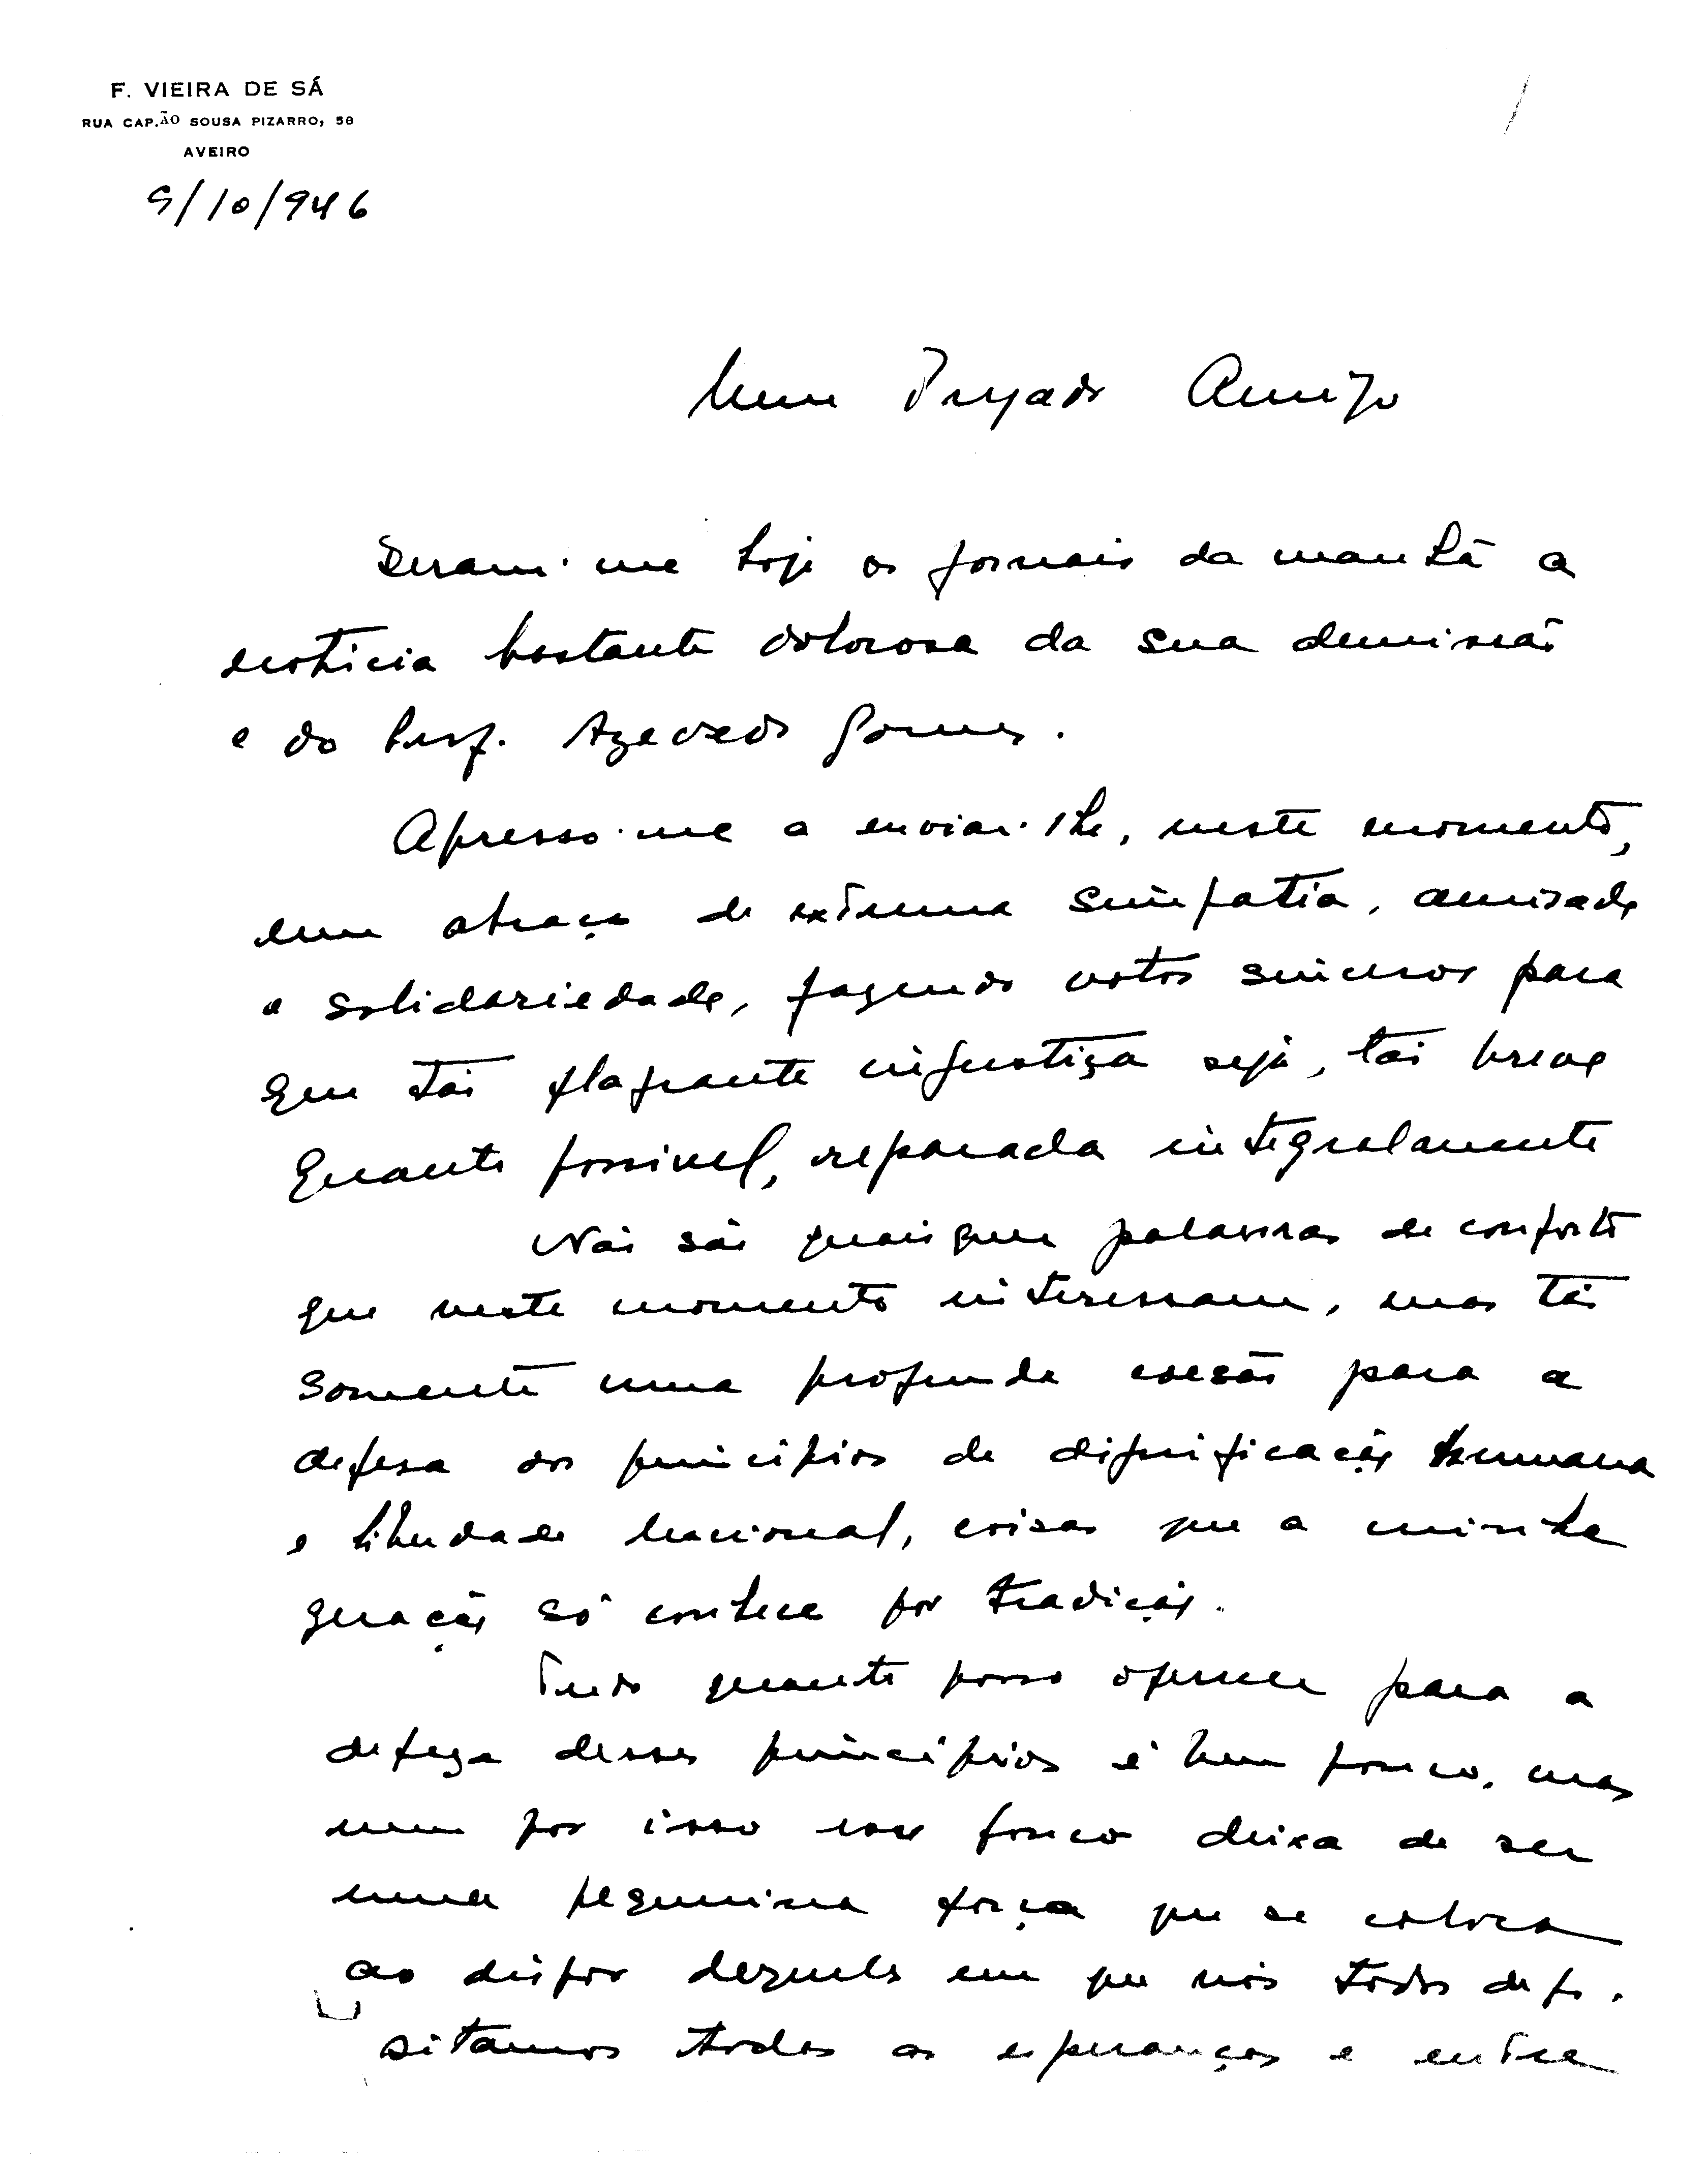 F. VIEIRA DE SÁ
RUA CAP.ÃO SOUSA PIZARRO, 58
AVEIRO
9/10/946
Meu Prezado Amigo
Deram-me hoje os jornais da manhã a
notícia bastante dolorosa da sua demissão
e do Prof. Azevedo Gomes.
Apresso-me a enviar-lhe, neste momento,
um abraço de extrema simpatia, amizade
e solidariedade, fazendo votos sinceros para
que tão flagrante injustiça seja, tão breve
quanto possivel, reparada integralmente
Não são quaisquer palavras de conforto
que neste momento interessam, mas tão
somente uma profunda coesão para a
defesa dos princípios de dignificação humana
e liberdade nacional, coisas que a minha
geração só conhece por tradição.
Tudo quanto posso oferecer para a
defeza desses princípios é bem pouco, mas
nem por isso esse pouco deixa de ser
uma pequenina força que se coloca
ao dispor daqueles em que nós todos depo-
sitamos todas as esperanças e entre